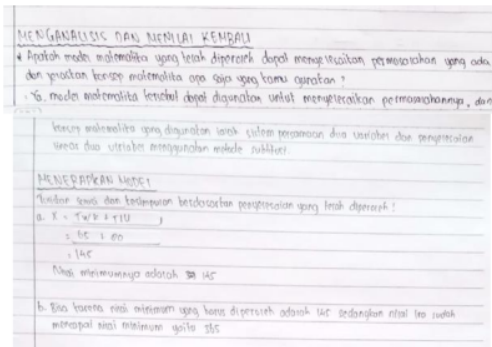 MENGANALISIS DAN MENILAI KEMBALI
* Apakah model matematika yang telah diperoleh dapat menyelesaikan permasalahan yang ada
dan jelaskan konsep matematika apa saja yang kamu gunakan ?
· Ya, model matematika tersebut dapat digunakan untuk menyelesaikan permasalahannya, dan
konsep matematika yang digunakan ialah sistem persamaan dua variabel dan penyelesaian
linear dua variabel menggunakan metode subtitusi.
MENERAPKAN MODEL
Tuliskan kesimpulan berdasarkan penyelesaian yang telah diperoleh !
a. X = TWK + TIU
= 65 + 80
= 145
Nilai minimumnya adalah 145
b. Bisa karena nilai minimum yang harus diperoleh adalah 145 sedangkan nilai Ira sudah
mencapai nilai minimum yaitu 365